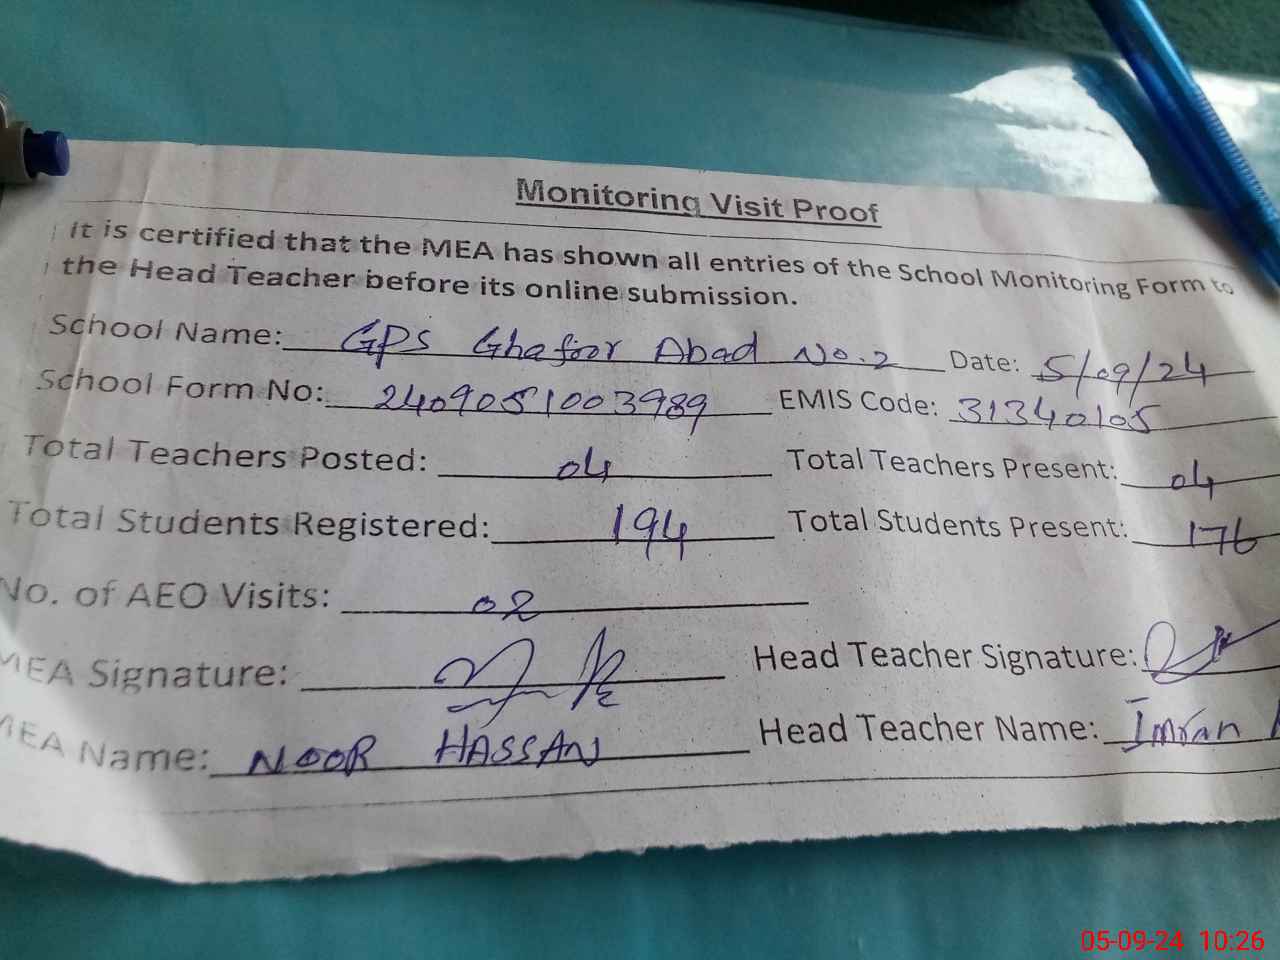 Monitoring Visit Proof
it is certified that the MEA has shown all entries of the School Monitoring Form to
the Head Teacher before its online submission.
School Name: GPS Ghafoor Abad No.2 Date: 5/09/24
School Form No: 2409051003989 EMIS Code: 31340105
Total Teachers Posted: 04 Total Teachers Present: 04
Total Students Registered: 194 Total Students Present: 176
No. of AEO Visits: 02
MEA Signature: Head Teacher Signature:
MEA Name: NOOR HASSAN Head Teacher Name: Imran
05-09-24 10:26